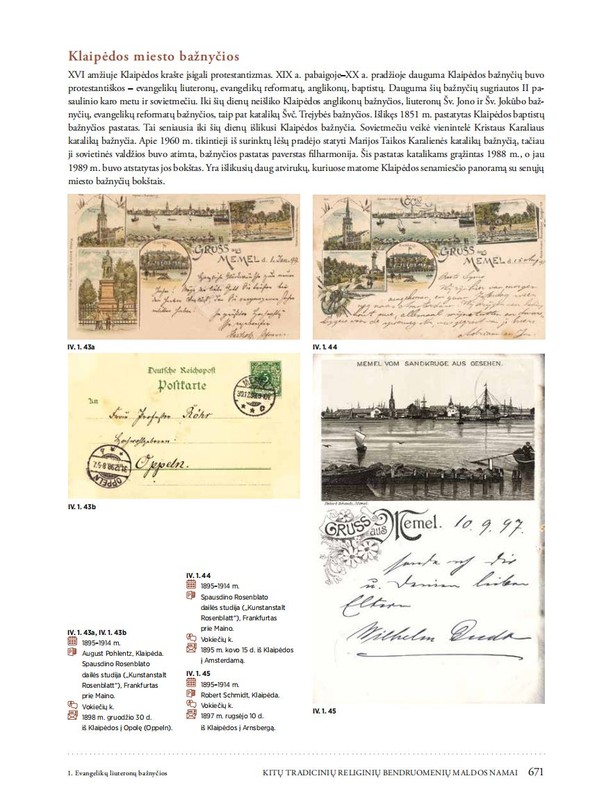 Klaipėdos miesto bažnyčios
XVI amžiuje Klaipėdos krašte įsigali protestantizmas. XIX a. pabaigoje–XX a. pradžioje dauguma Klaipėdos bažnyčių buvo
protestantiškos – evangelikų liuteronų, evangelikų reformatų, anglikonų, baptistų. Dauguma šių bažnyčių sugriautos II pa-
saulinio karo metu ir sovietmečiu. Iki šių dienų neišliko Klaipėdos anglikonų bažnyčios, liuteronų Šv. Jono ir Šv. Jokūbo baž-
nyčių, evangelikų reformatų bažnyčios, taip pat katalikų Švč. Trejybės bažnyčios. Išlikęs 1851 m. pastatytas Klaipėdos baptistų
bažnyčios pastatas. Tai seniausia iki šių dienų išlikusi Klaipėdos bažnyčia. Sovietmečiu veikė vienintelė Kristaus Karaliaus
katalikų bažnyčia. Apie 1960 m. tikintieji iš surinktų lėšų pradėjo statyti Marijos Taikos Karalienės katalikų bažnyčią, tačiau
ji sovietinės valdžios buvo atimta, bažnyčios pastatas paverstas filharmonija. Šis pastatas katalikams grąžintas 1988 m., o jau
1989 m. buvo atstatytas jos bokštas. Yra išlikusių daug atvirukų, kuriuose matome Klaipėdos senamiesčio panoramą su senųjų
miesto bažnyčių bokštais.
GRUSS aus MEMEL
GRUSS aus MEMEL
IV. 1. 43a
IV. 1. 44
Deutsche Reichspost
Postkarte
An
Frau Professor Röhr
Hochwohlgeboren
Oppeln.
OPPELN
IV. 1. 43b
MEMEL VOM SANDKRUGE AUS GESEHEN.
GRUSS aus Memel. 10.9.97.
sendet dir
u. Deinen lieben
Eltern
Wilhelm Duda
IV. 1. 45
IV. 1. 43a, IV. 1. 43b
1895–1914 m.
August Pohlentz, Klaipėda.
Spausdino Rosenblato
dailės studija („Kunstanstalt
Rosenblatt“), Frankfurtas
prie Maino.
Vokiečių k.
1898 m. gruodžio 30 d.
iš Klaipėdos į Opolę (Oppeln).
IV. 1. 44
1895–1914 m.
Spausdino Rosenblato
dailės studija („Kunstanstalt
Rosenblatt“), Frankfurtas
prie Maino.
Vokiečių k.
1895 m. kovo 15 d. iš Klaipėdos
į Amsterdamą.
IV. 1. 45
1895–1914 m.
Robert Schmidt, Klaipėda.
Vokiečių k.
1897 m. rugsėjo 10 d.
iš Klaipėdos į Arnsbergą.
1. Evangelikų liuteronų bažnyčios
KITŲ TRADICINIŲ RELIGINIŲ BENDRUOMENIŲ MALDOS NAMAI 671